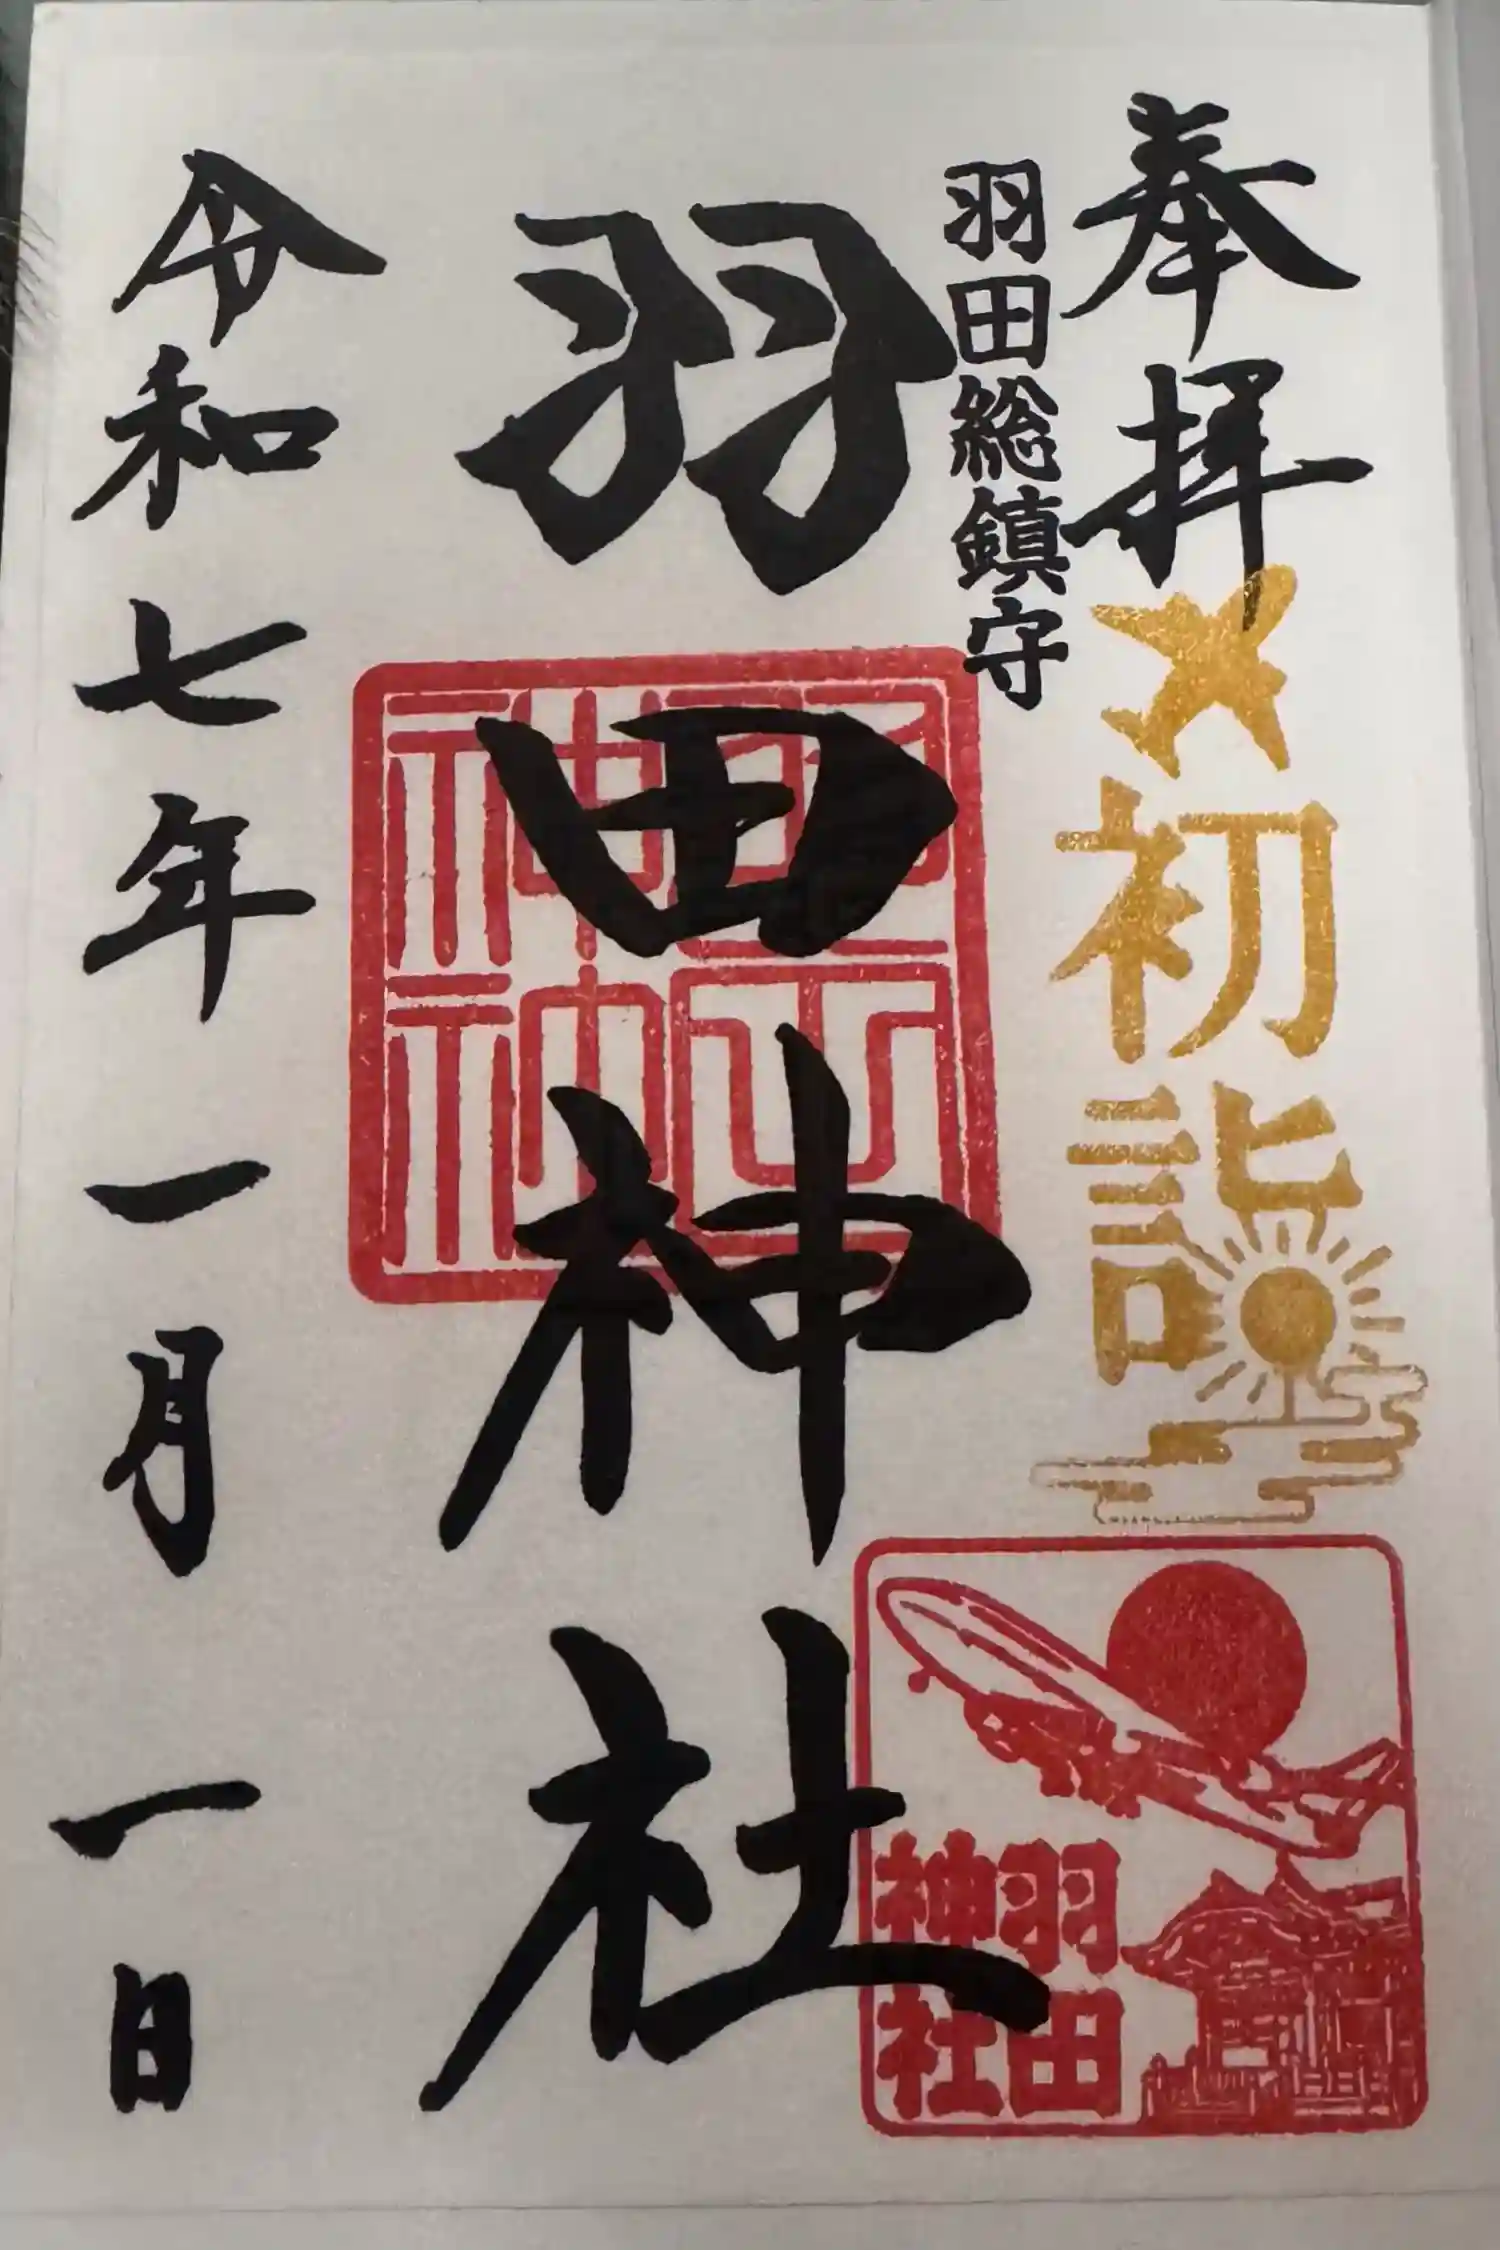 奉拝
初詣
羽田総鎮守
羽田神社
羽田
神社
令和七年一月一日